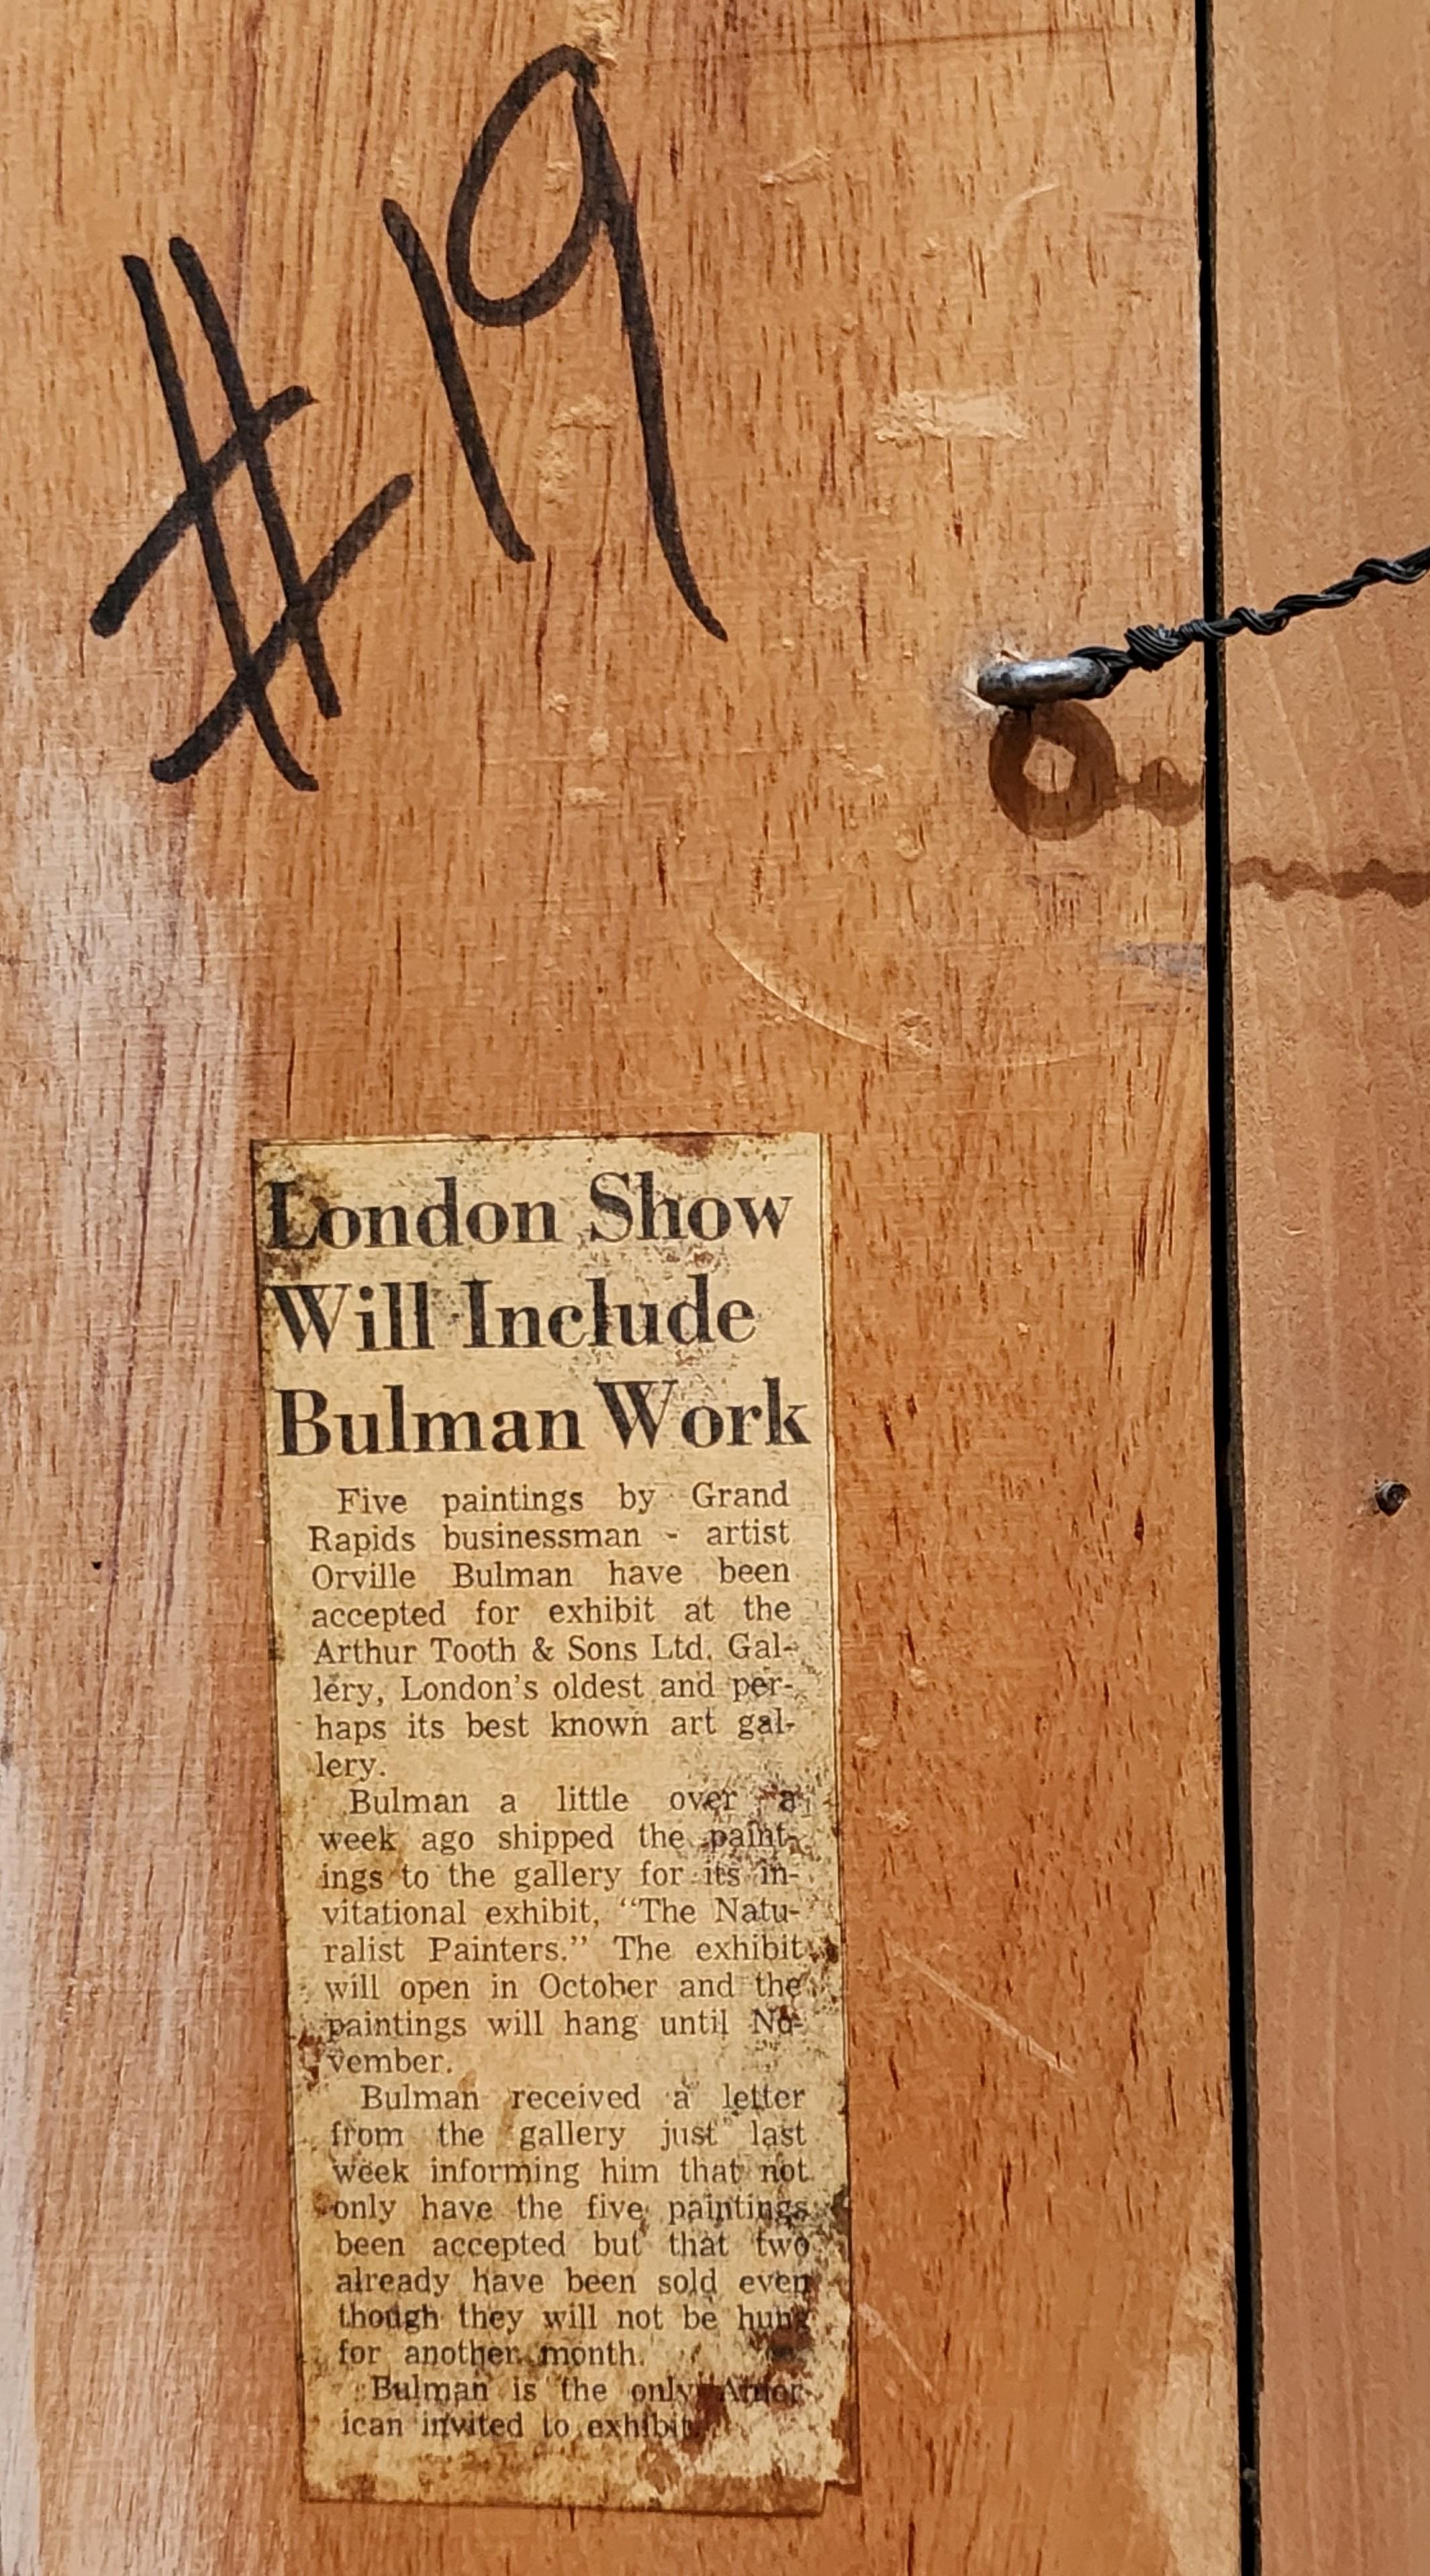 #19
London Show
Will Include
Bulman Work
Five paintings by Grand
Rapids businessman - artist
Orville Bulman have been
accepted for exhibit at the
Arthur Tooth & Sons Ltd. Gal-
lery, London's oldest and per-
haps its best known art gal-
lery.
Bulman a little over a
week ago shipped the paint-
ings to the gallery for its in-
vitational exhibit, "The Natu-
ralist Painters." The exhibit
will open in October and the
paintings will hang until No-
vember.
Bulman received a letter
from the gallery just last
week informing him that not
only have the five paintings
been accepted but that two
already have been sold even
though they will not be hung
for another month.
Bulman is the only Amer-
ican invited to exhibit.